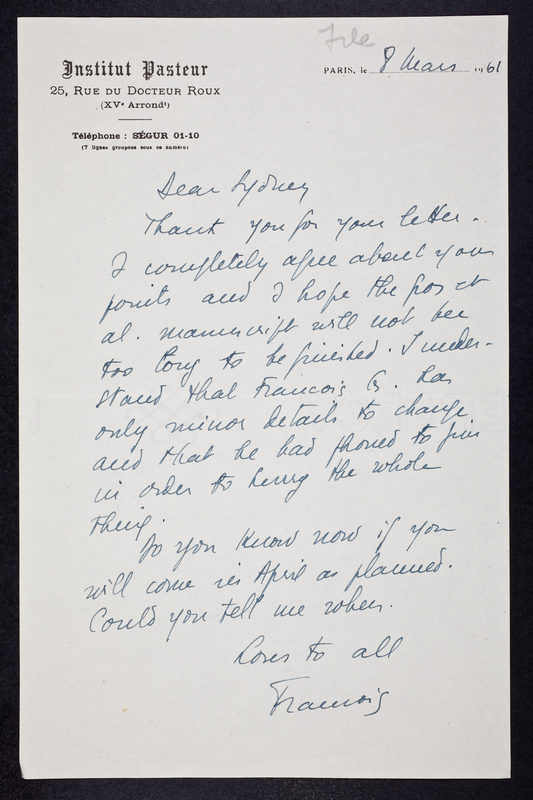 File
Institut Pasteur
25, RUE DU DOCTEUR ROUX
(XVe Arrondt)
Téléphone : SÉGUR 01-10
(7 lignes groupées sous ce numéro)
PARIS, le 8 Mars 1961
Dear Sydney
Thank you for your letter.
I completely agree about your
points and I hope the Gros et
al. manuscript will not bee
too long to be finished. I under-
stand that Francois G. has
only minor details to change
and that he had phoned to Jim
in order to hurry the whole
thing.
Do you know now if you
will come in April as planned.
Could you tell me when.
Love to all
Francois